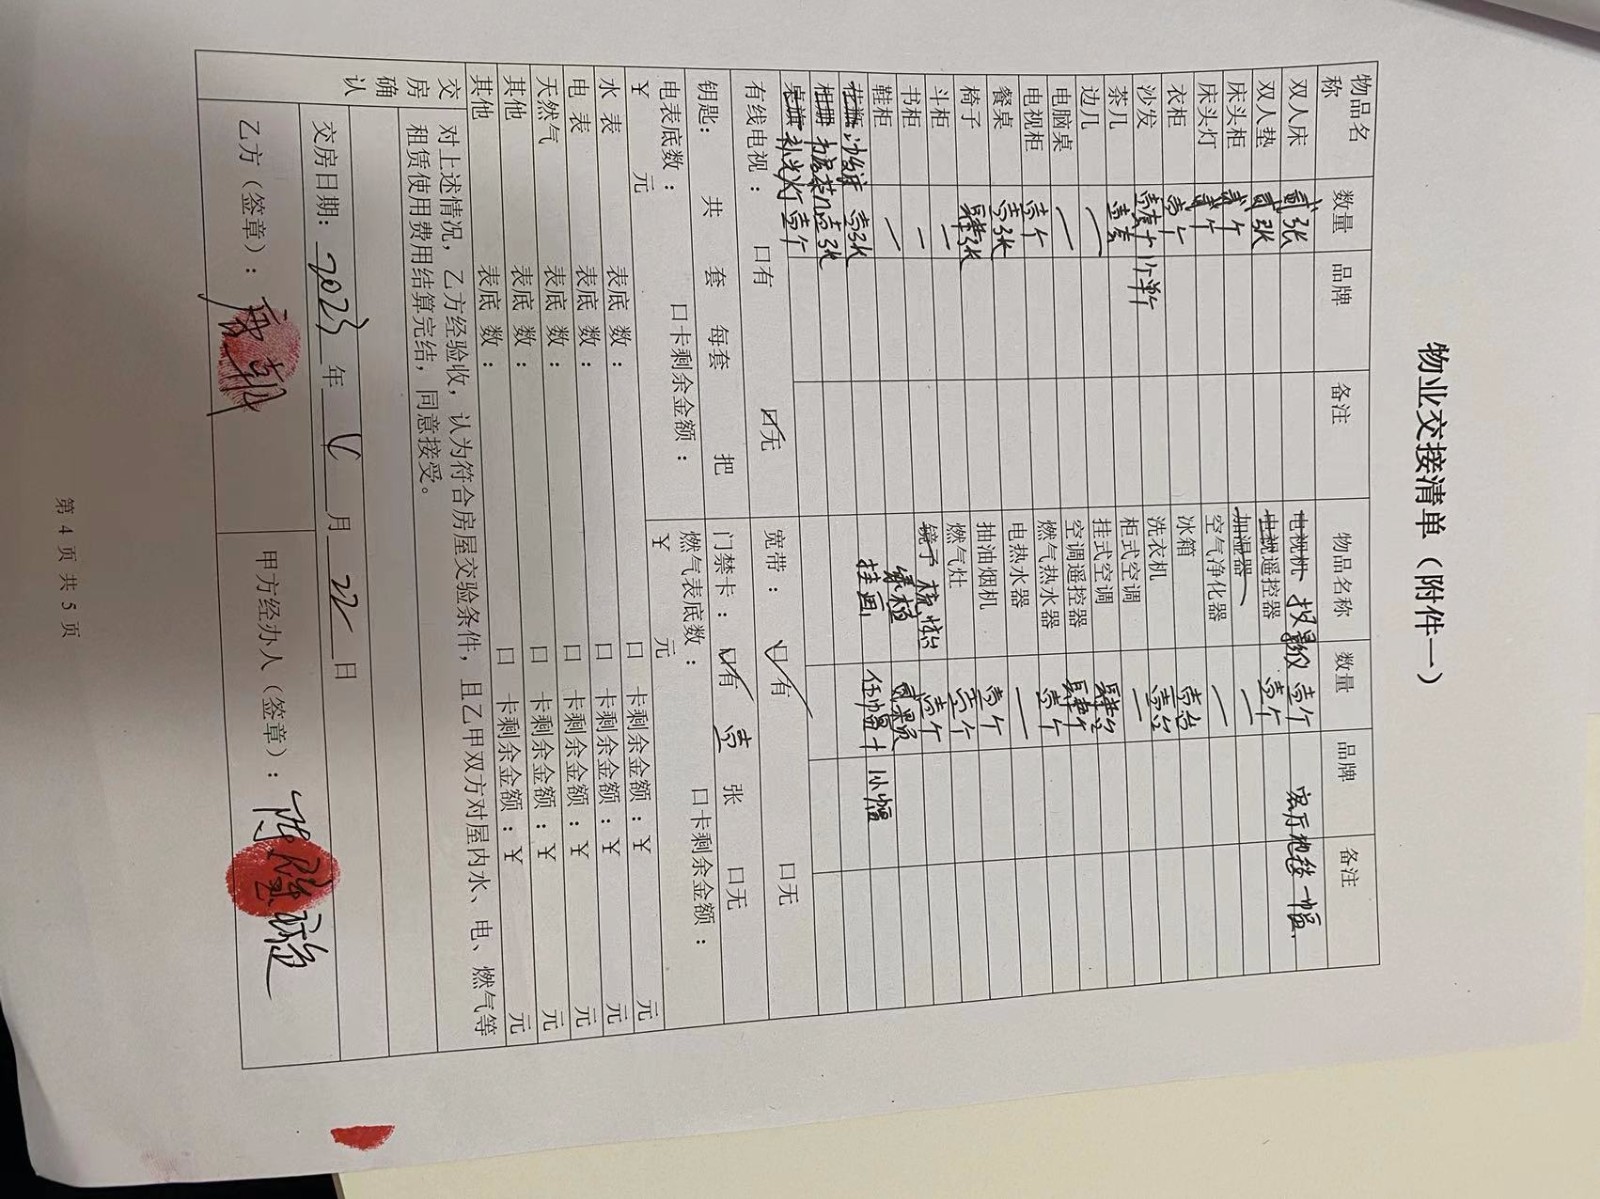 物业交接清单（附件一）
物品名称 数量 品牌 备注 物品名称 数量 品牌 备注
双人床 贰张 电视机 投影仪 壹个
双人垫 贰张 电视遥控器 壹个
床头柜 贰个 加湿器 一
床头灯 空气净化器 一
衣柜 壹个 冰箱 壹台
沙发 洗衣机 壹台
茶几 壹套 柜式空调 一
边几 一 挂式空调 肆台
电脑桌 一 空调遥控器 肆个
电视柜 壹个 燃气热水器 壹个
餐桌 壹张 电热水器 一
椅子 肆张 抽油烟机 壹个
斗柜 一 燃气灶 壹个
书柜 一 镜子 壹个
鞋柜 一 绿植
壹张 挂画
壹张
补光灯 壹个
有线电视： 口有 口无 宽带： 口有 口无
钥匙： 共 套 每套 把 门禁卡： 口有 壹 张 口无
电表底数： 口卡剩余金额： 燃气表底数： 口卡剩余金额：
￥ 元 ￥ 元
水 表 表底 数： 口 卡剩余金额：￥ 元
电 表 表底 数： 口 卡剩余金额：￥ 元
天然气 表底 数： 口 卡剩余金额：￥ 元
其他 表底 数： 口 卡剩余金额：￥ 元
其他 表底 数： 口 卡剩余金额：￥ 元
交房确认
对上述情况，乙方经验收，认为符合房屋交验条件，且乙甲双方对屋内水、电、燃气等
租赁使用费用结算完结，同意接受。
交房日期：2023年 6 月 22 日
乙方（签章）： 甲方经办人（签章）：
第 4 页 共 5 页